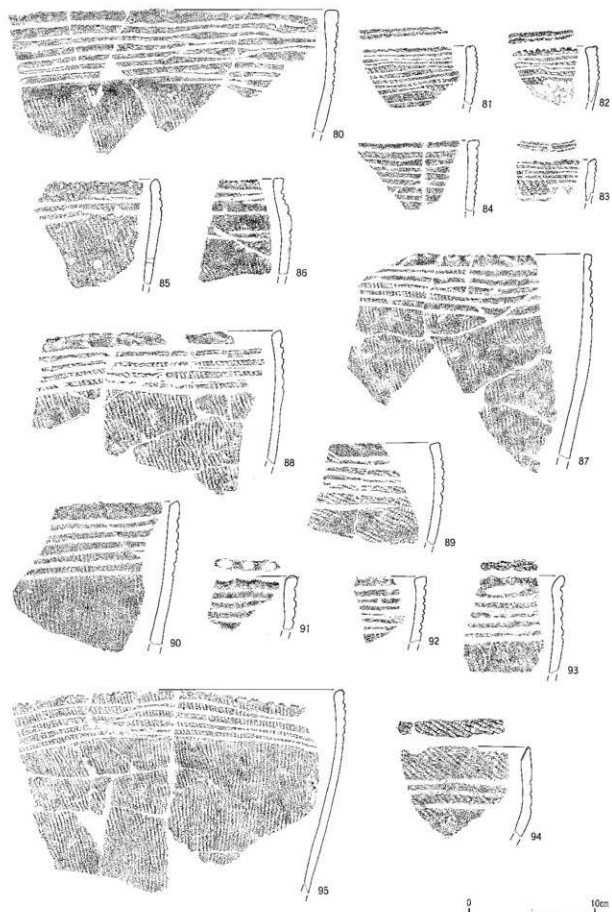 80
81
82
84
83
85
86
87
88
89
90
91
92
93
95
94
0 10cm